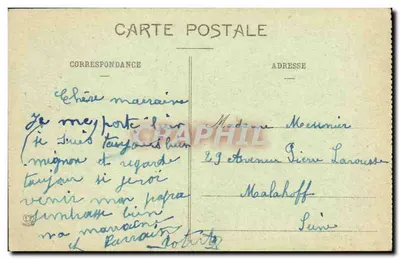 CARTE POSTALE
CORRESPONDANCE
ADRESSE
Chère marraine
Je me porte bien
je suis toujours bien
mignon et regarde
toujour si je voi
venir mon papa
j'embrasse bien
ma marraine
et Parrain
Madame Meunier
29 Avenue Pierre Larousse
Malakoff
Seine
CPAPHIL